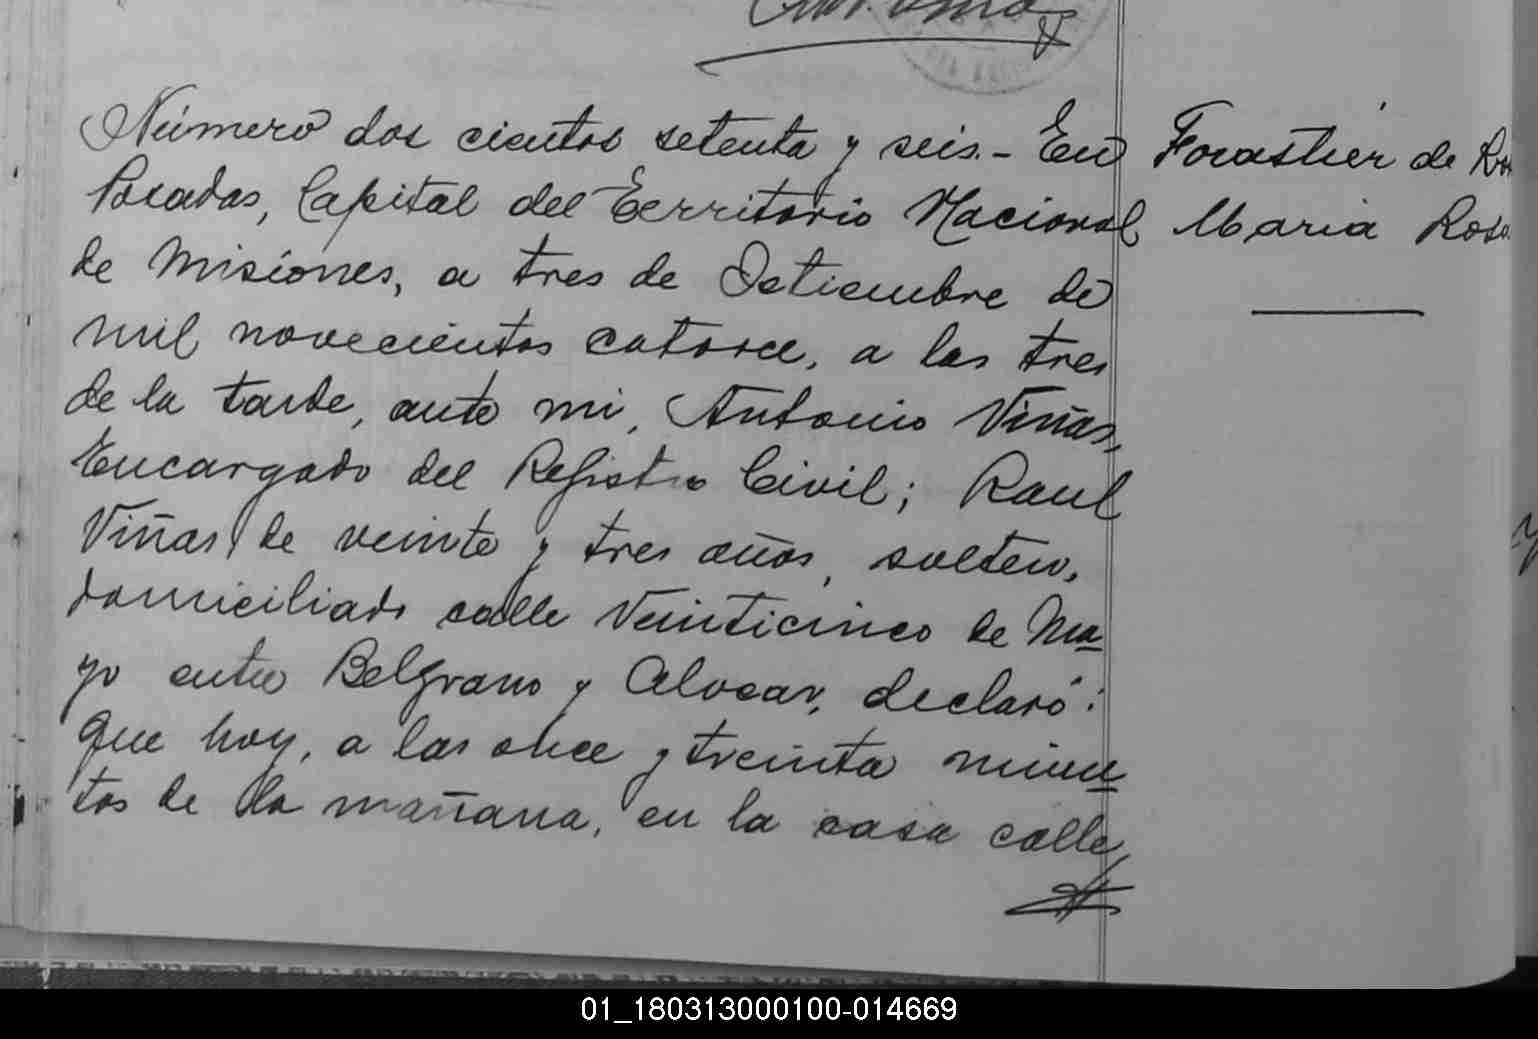 Número dos cientos setenta y seis.- En
Posadas, Capital del Territorio Nacional
de Misiones, a tres de Setiembre de
mil novecientos catorce, a las tres
de la tarde, ante mi, Antonio Viñas,
Encargado del Registro Civil; Raul
Viñas, de veinte y tres años, soltero,
domiciliado calle Veinticinco de Ma
yo entre Belgrano y Alvear, declaró:
que hoy, a las once y treinta minu
tos de la mañana, en la casa calle
Forastier de
Maria Rosa
01_180313000100-014669